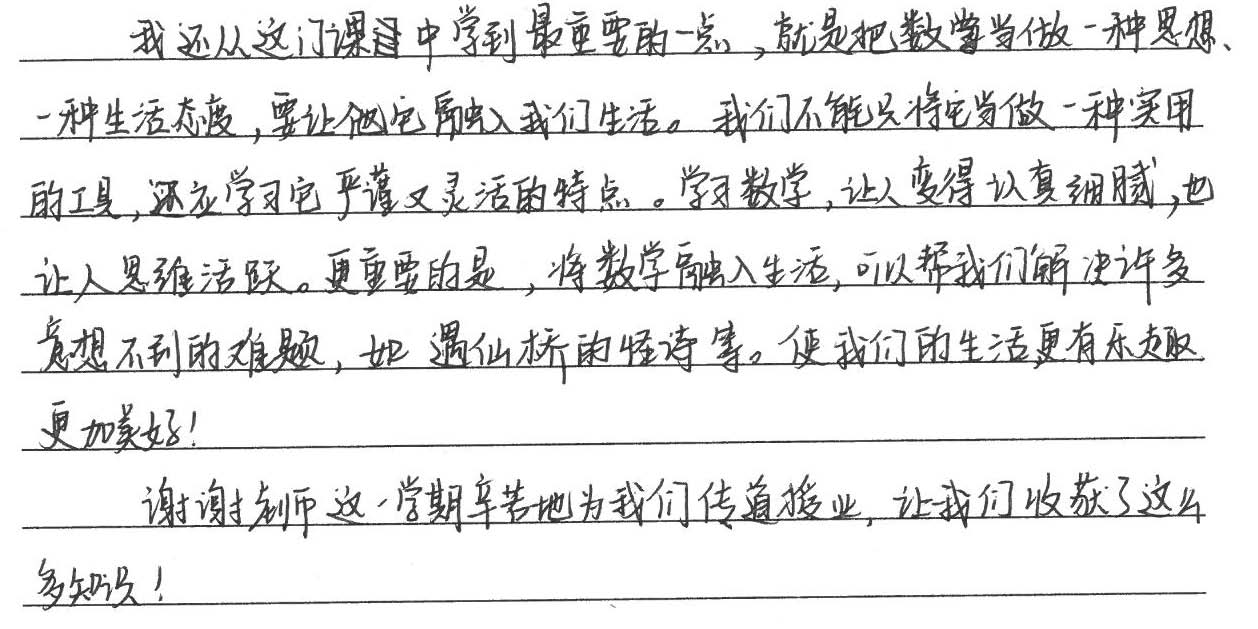 我还从这门课程中学到最重要的一点，就是把数学当做一种思想、
一种生活态度，要让它融入我们生活。我们不能只将它当做一种实用
的工具，还应学习它严谨又灵活的特点。学习数学，让人变得认真细腻，也
让人思维活跃。更重要的是，将数学融入生活，可以帮我们解决许多
意想不到的难题，如遇仙桥的怪诗等。使我们的生活更有乐趣
更加美好！
谢谢老师这一学期辛苦地为我们传道授业，让我们收获了这么
多知识！